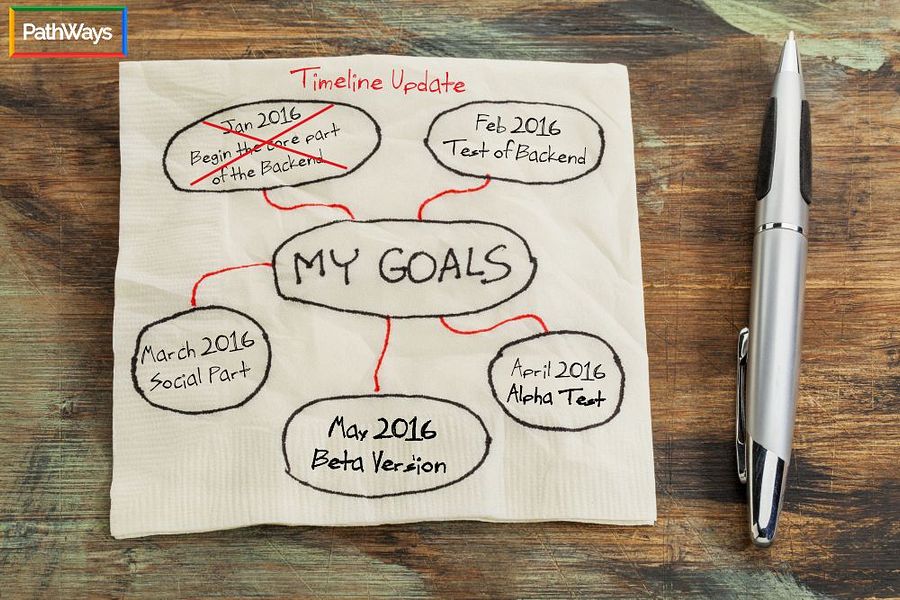 PathWays
Timeline Update
Jan 2016
Begin the core part
of the Backend
Feb 2016
Test of Backend
MY GOALS
March 2016
Social Part
April 2016
Alpha Test
May 2016
Beta Version